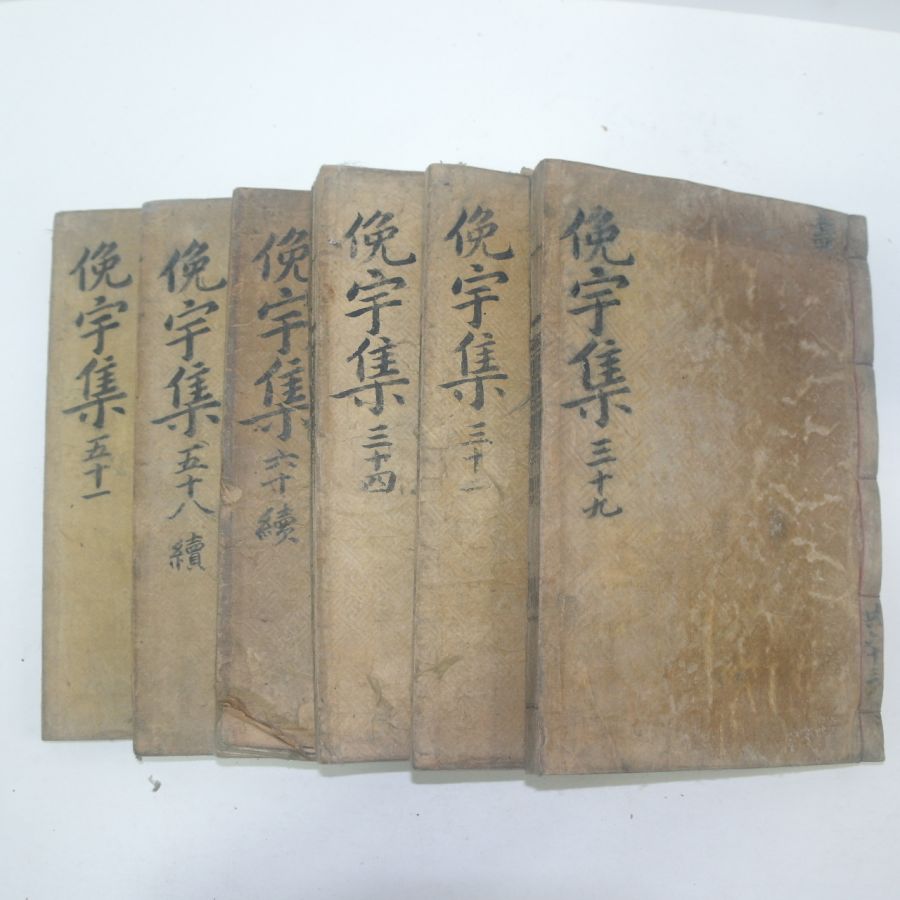 俛宇集 三十九
俛宇集 三十一
俛宇集 三十四
俛宇集 六十 續
俛宇集 五十八 續
俛宇集 五十一